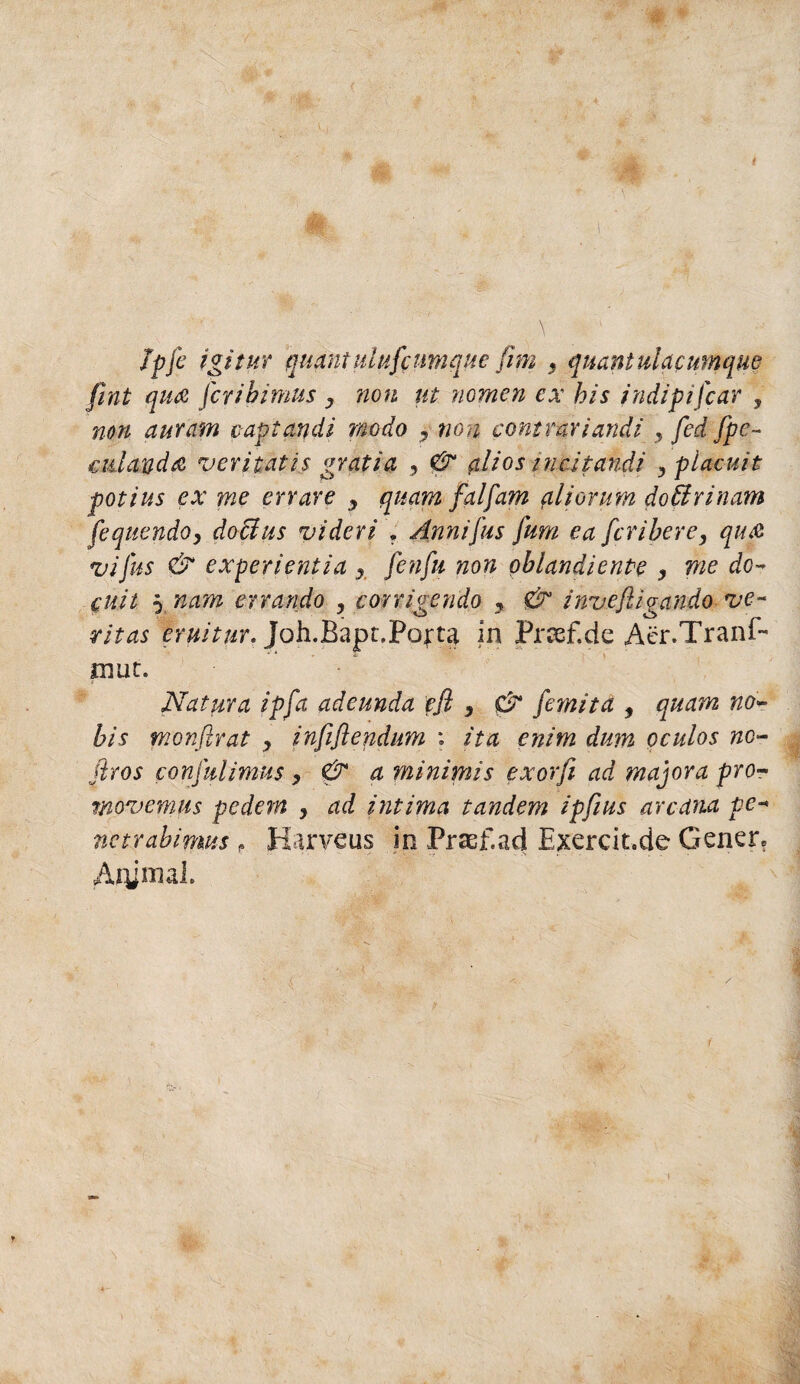 Ipſe igitur quantuluſcumque ſim , quantulacumque
ſint quæ ſcribimus , non ut nomen ex his indipiſcar ,
non auram captandi modo , non contrariandi , ſed ſpe-
culandæ veritatis gratia , & alios incitandi , placuit
potius ex me errare , quam falſam aliorum doctrinam
ſequendo, doctus videri . Anniſus ſum ea ſcribere, quæ
viſus & experientia , ſenſu non oblandiente , me do-
cuit ; nam errando , corrigendo , & inveſtigando ve-
ritas eruitur. Joh.Bapt.Porta in Præf.de Aër.Tranſ-
mut.
Natura ipſa adeunda eſt , & ſemita , quam no-
bis monſtrat , inſiſtendum : ita enim dum oculos no-
ſtros conſulimus , & a minimis exorſi ad majora pro-
movemus pedem , ad intima tandem ipſius arcana pe-
netrabimus . Harveus in Præf.ad Exercit.de Gener.
Animal.